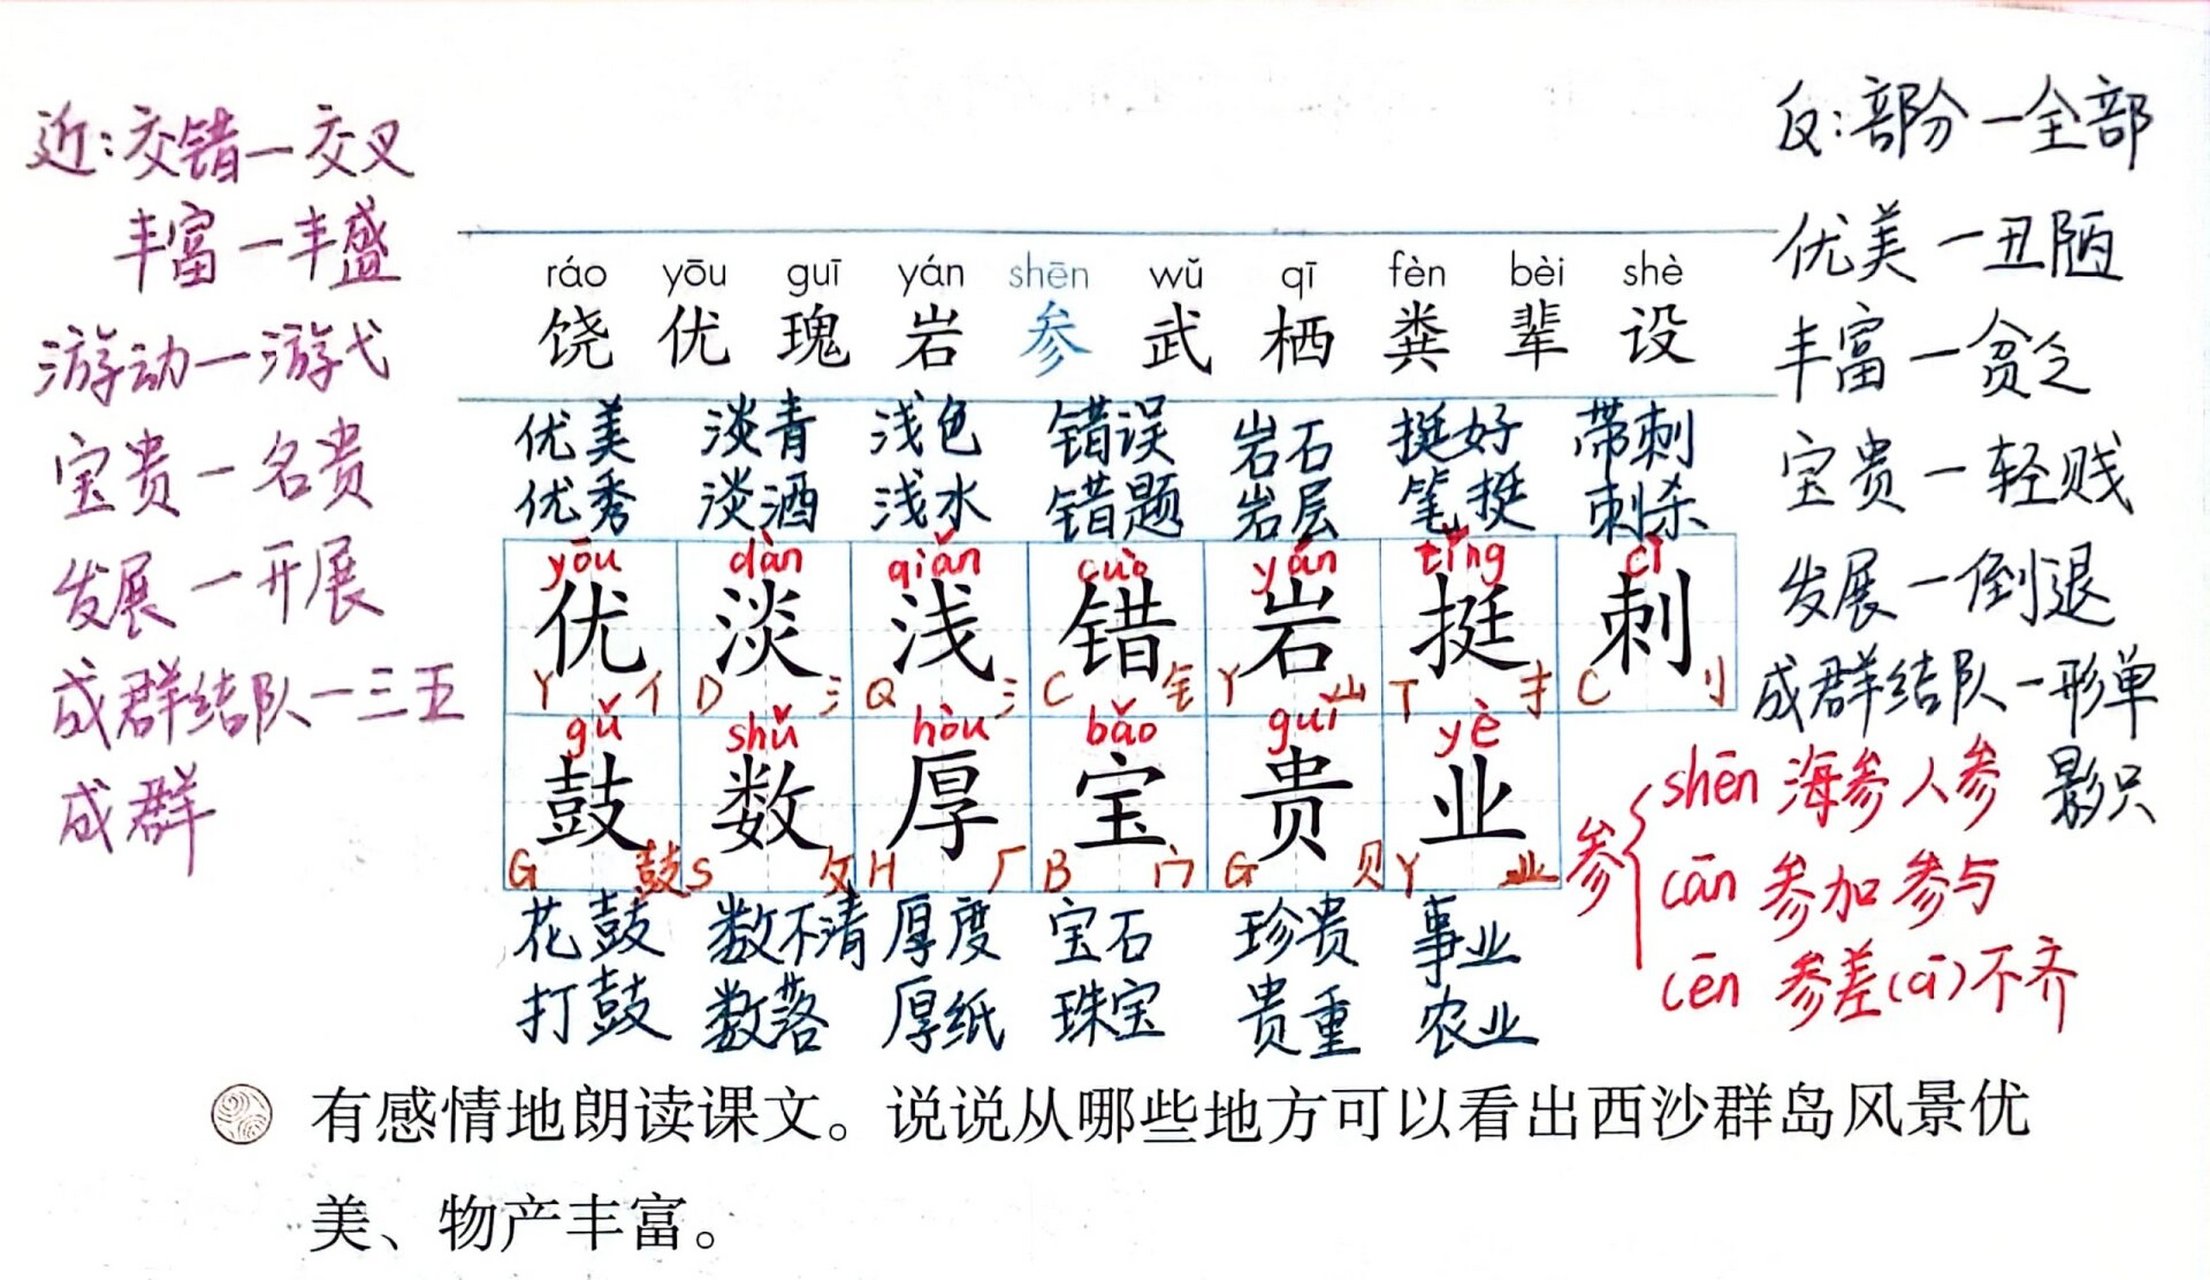 近：交错一交叉
丰富一丰盛
游动一游弋
宝贵一名贵
发展一开展
成群结队一三五
成群
ráo yōu guī yán shēn wǔ qī fèn bèi shè
饶 优 瑰 岩 参 武 栖 粪 辈 设
优美 淡青 浅色 错误 岩石 挺好 带刺
优秀 淡酒 浅水 错题 岩层 笔挺 刺杀
yōu dàn qiǎn cuò yán tǐng cì
优 淡 浅 错 岩 挺 刺
Y 亻 D 氵 Q 氵 C 钅 Y 山 T 扌 C 刂
gǔ shǔ hòu bǎo guì yè
鼓 数 厚 宝 贵 业
G 鼓 S 攵 H 厂 B 宀 G 贝 Y 业
花鼓 数不清 厚度 宝石 珍贵 事业
打鼓 数落 厚纸 珠宝 贵重 农业
反：部分一全部
优美一丑陋
丰富一贫乏
宝贵一轻贱
发展一倒退
成群结队一形单
影只
参
shēn 海参 人参
cān 参加 参与
cēn 参差(cī)不齐
有感情地朗读课文。说说从哪些地方可以看出西沙群岛风景优
美、物产丰富。